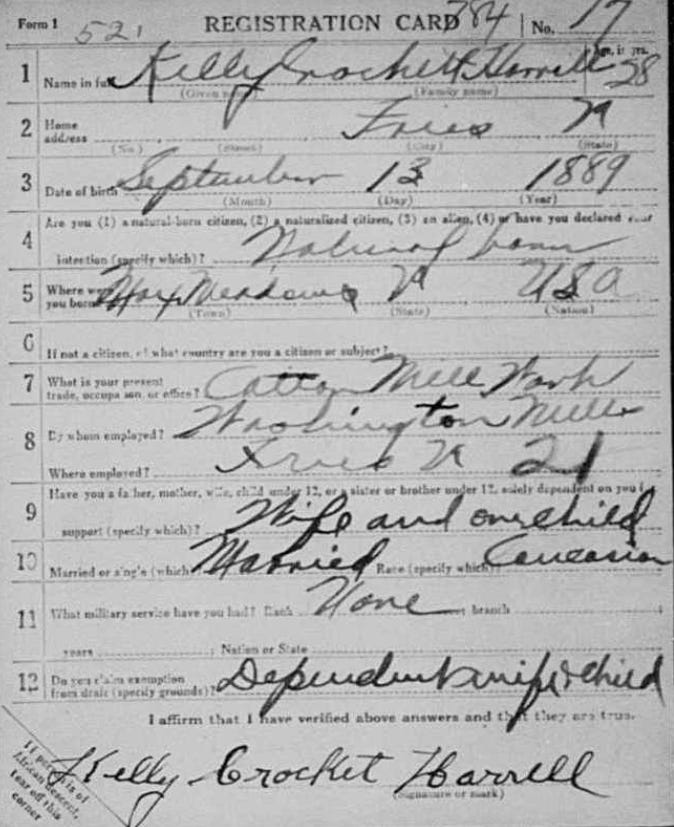 Form 1 521 REGISTRATION CARD 784 No. 17
1 Name in full Kelly Crockett Harrell Age, in yrs. 28
(Given name) (Family name)
2 Home address Fries Va
(No.) (Street) (City) (State)
3 Date of birth September 13 1889
(Month) (Day) (Year)
4 Are you (1) a natural-born citizen, (2) a naturalized citizen, (3) an alien, (4) or have you declared your
intention (specify which)? Natural born
5 Where were you born? Max Meadows Va USA
(Town) (State) (Nation)
6 If not a citizen, of what country are you a citizen or subject?
7 What is your present trade, occupation, or office? Cotton Mill Work
8 By whom employed? Washington Mills
Where employed? Fries Va 21
9 Have you a father, mother, wife, child under 12, or a sister or brother under 12, solely dependent on you for
support (specify which)? Wife and one child
10 Married or single (which)? Married Race (specify which)? Caucasian
11 What military service have you had? Rank None ; branch ;
years ; Nation or State
12 Do you claim exemption from draft (specify grounds)? Dependent wife & child
I affirm that I have verified above answers and that they are true.
If person is of African descent, tear off this corner
Kelly Crocket Harrell
(Signature or mark)